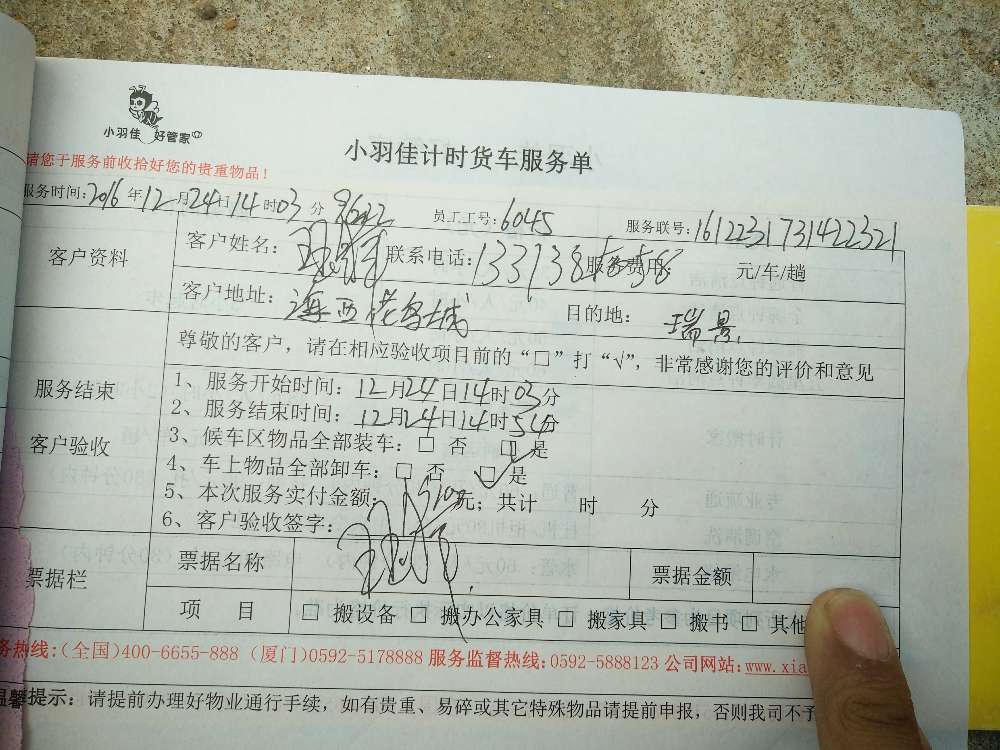 小羽佳 好管家
小羽佳计时货车服务单
请您于服务前收拾好您的贵重物品！
服务时间:2016年12月24日14时03分 员工工号:6045 服务联号:1612231731422321
客户资料 客户姓名: 联系电话: 服务费用: 元/车/趟
客户地址: 目的地: 瑞景
尊敬的客户，请在相应验收项目前的“□”打“√”，非常感谢您的评价和意见
服务结束
客户验收
1、服务开始时间:12月24日14时03分
2、服务结束时间:12月24日14时54分
3、候车区物品全部装车:□ 否 □ 是
4、车上物品全部卸车:□ 否 □ 是
5、本次服务实付金额: 元；共计 时 分
6、客户验收签字:
票据栏 票据名称 票据金额
项 目 □ 搬设备 □ 搬办公家具 □ 搬家具 □ 搬书 □ 其他
务热线:(全国)400-6655-888 (厦门)0592-5178888 服务监督热线:0592-5888123 公司网站:www.xia
温馨提示：请提前办理好物业通行手续，如有贵重、易碎或其它特殊物品请提前申报，否则我司不予